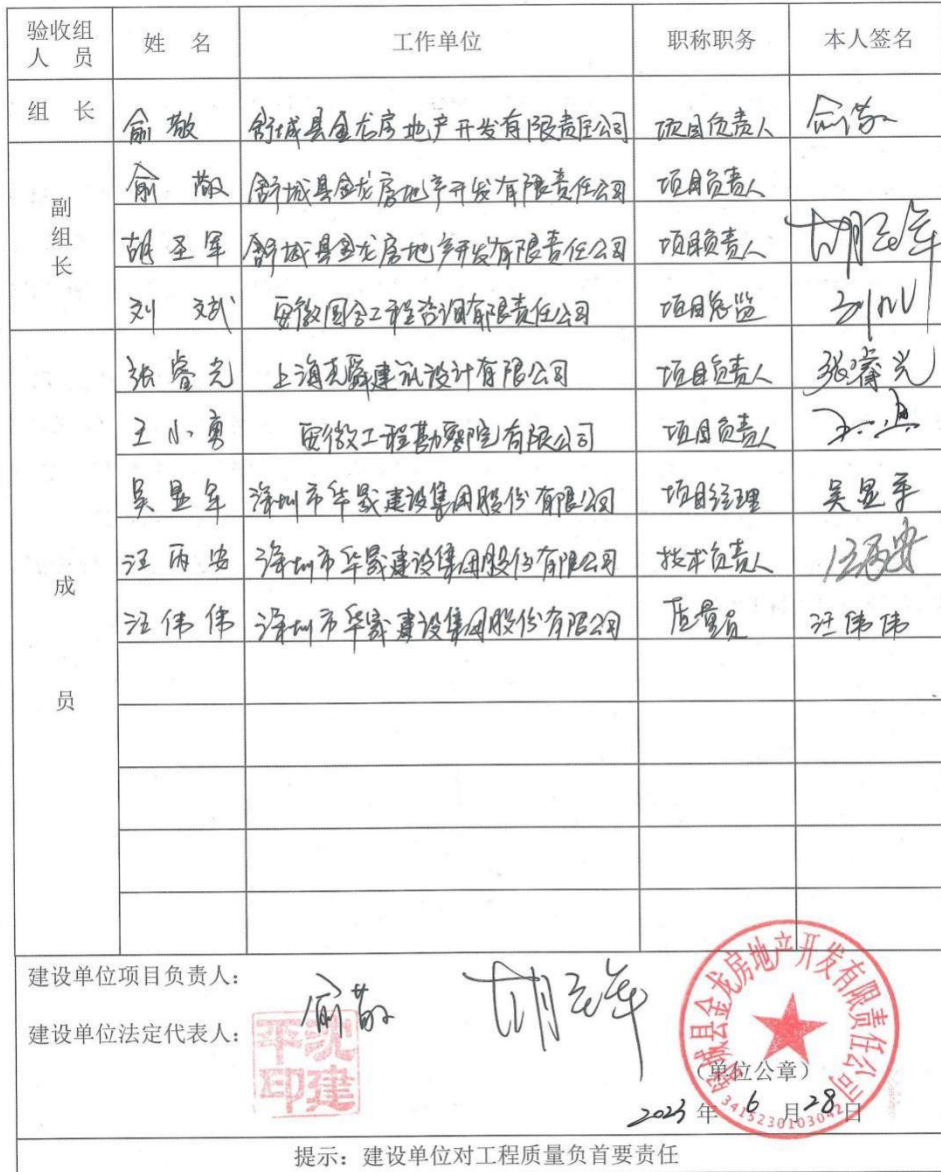 验收组人员 姓 名 工作单位 职称职务 本人签名
组 长 俞敬 舒城县金龙房地产开发有限责任公司 项目负责人 俞敬
副组长 俞敬 舒城县金龙房地产开发有限责任公司 项目负责人
胡圣军 舒城县金龙房地产开发有限责任公司 项目负责人 胡圣军
刘斌 安徽国合工程咨询有限责任公司 项目总监
成员 张睿光 上海尧舜建筑设计有限公司 项目负责人 张睿光
王小勇 安徽工程勘察院有限公司 项目负责人
吴显军 深圳市华晟建设集团股份有限公司 项目经理 吴显军
汪丙安 深圳市华晟建设集团股份有限公司 技术负责人 汪丙安
汪伟伟 深圳市华晟建设集团股份有限公司 质量员 汪伟伟
建设单位项目负责人: 俞敬 胡圣军
建设单位法定代表人: 沈建平印
舒城县金龙房地产开发有限责任公司
(单位公章)
3415230103042
2023 年 6 月 28 日
提示:建设单位对工程质量负首要责任